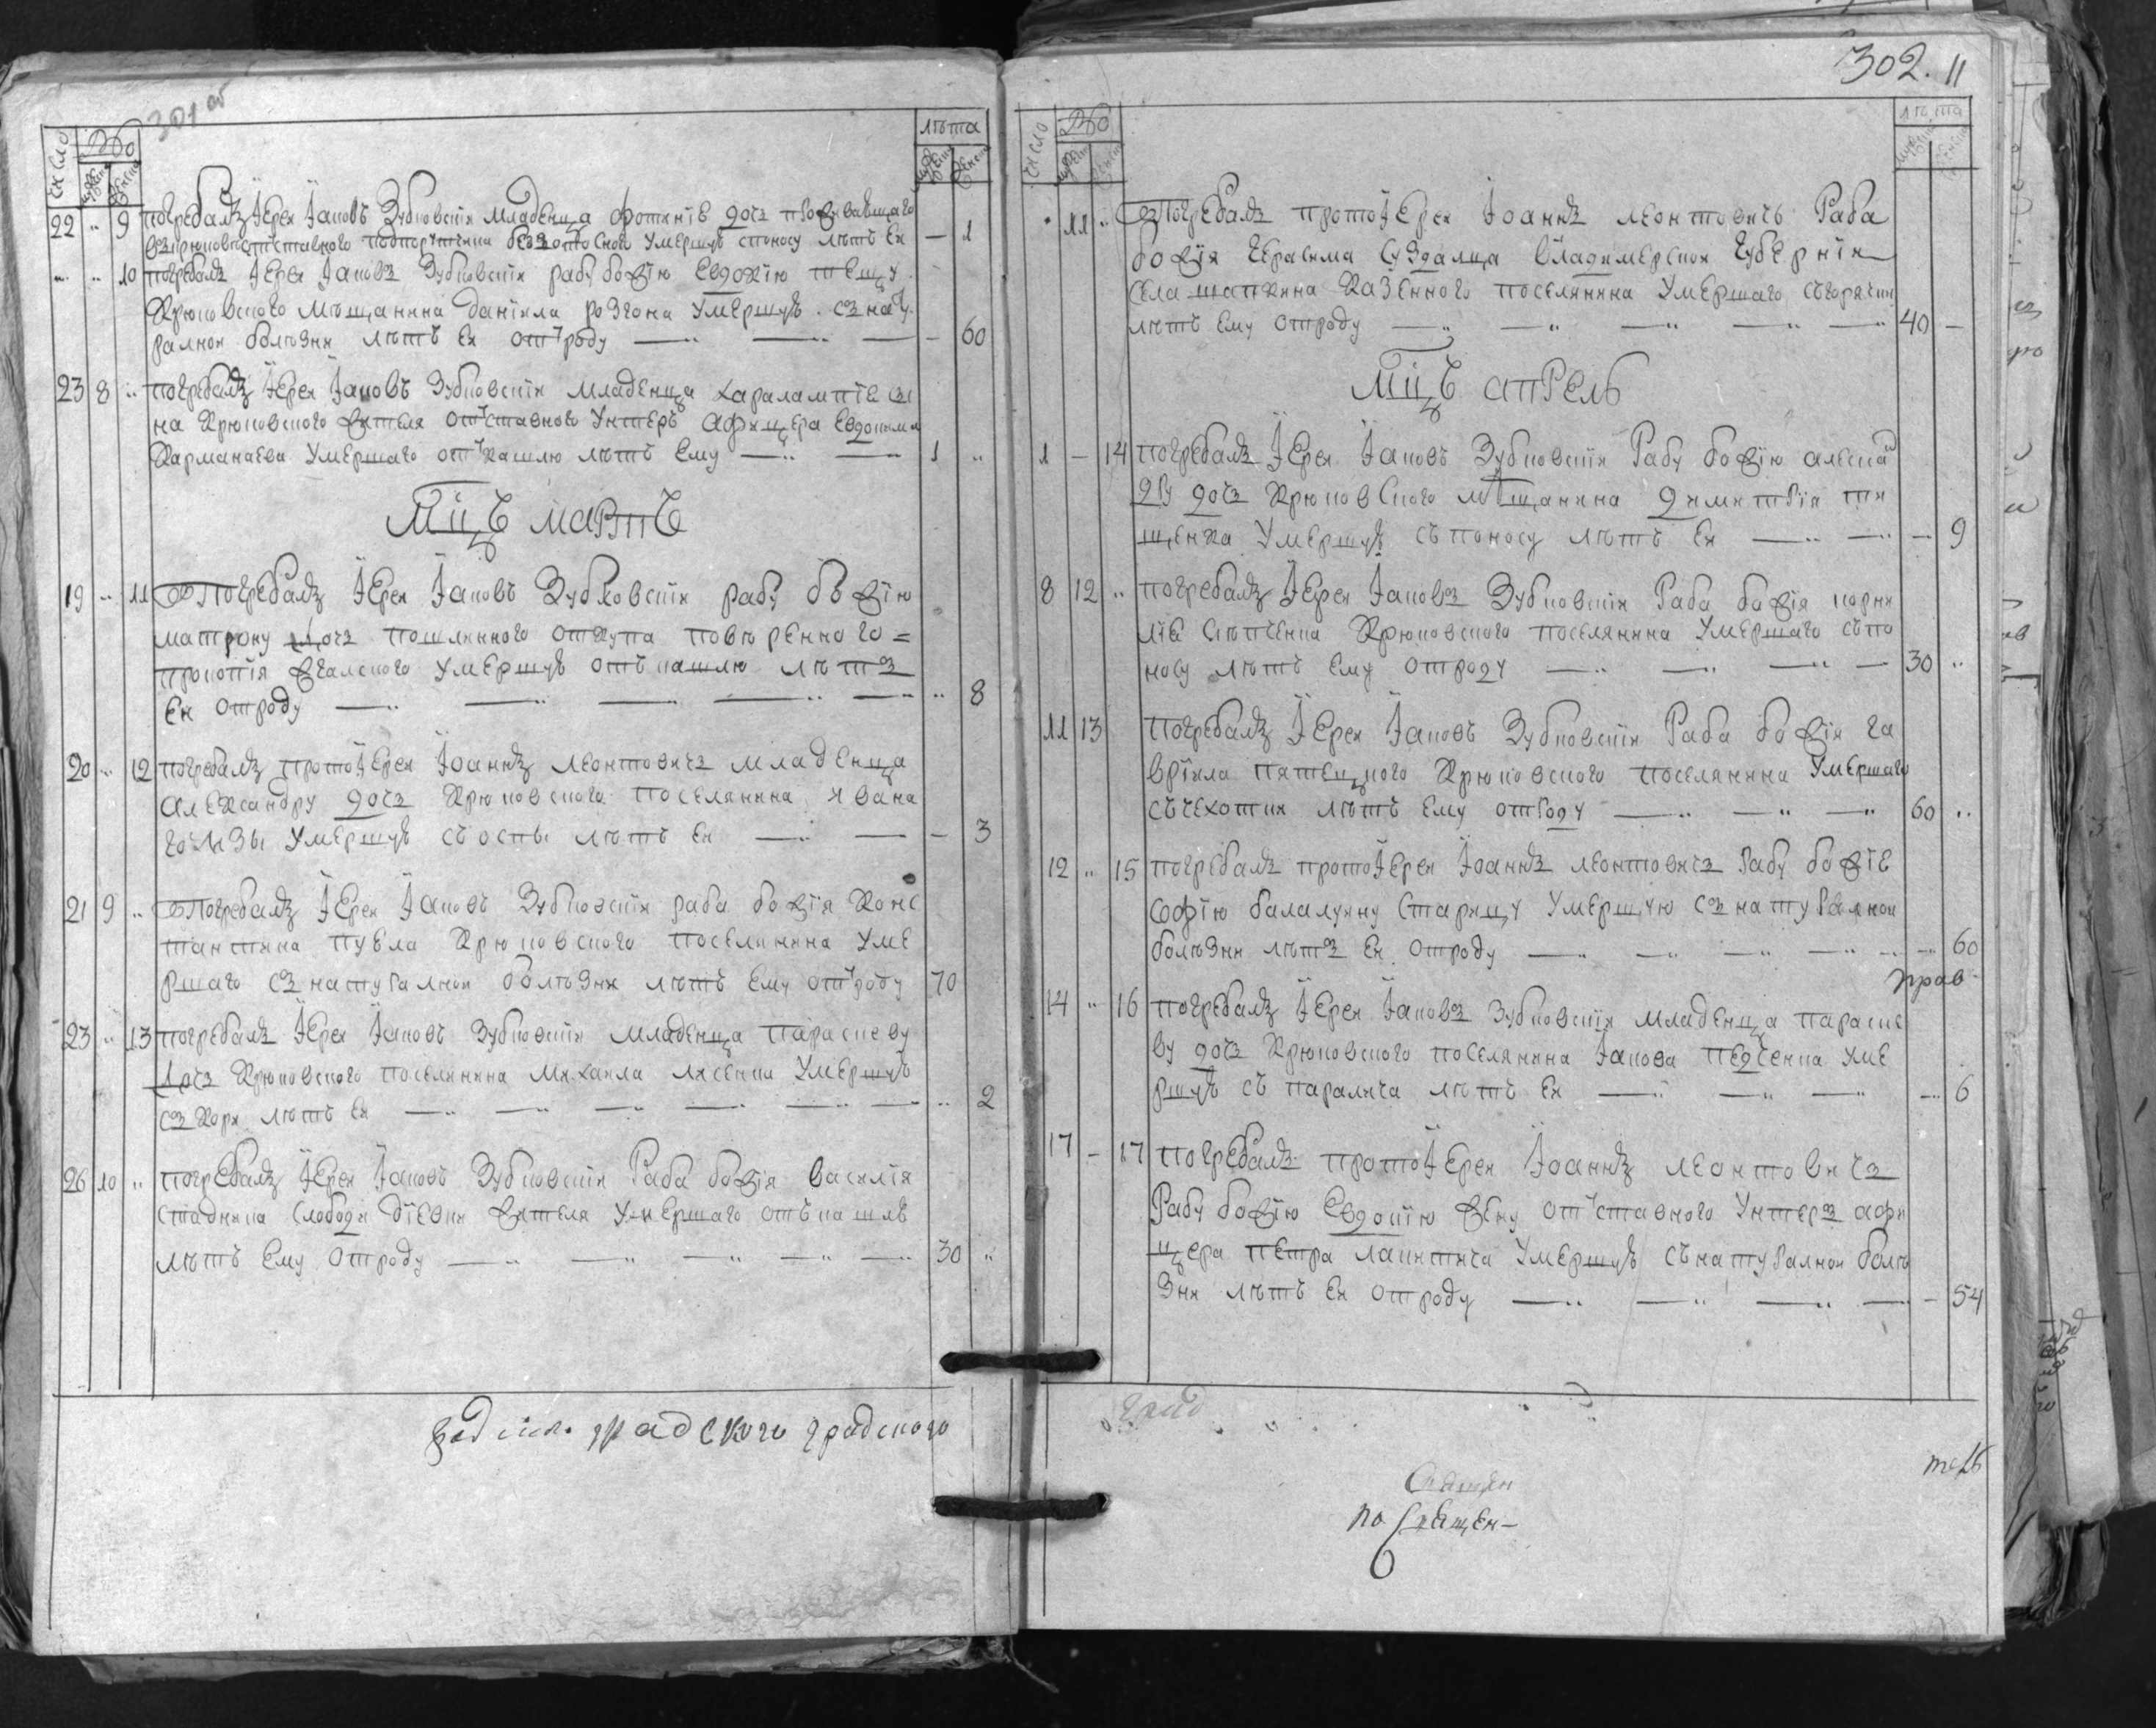 301 об
число
лѣта
22 " 9 погребалъ Іереи Іаковъ Зубковскіи младенца Фотиніе дочъ проживавщаго
въ крюковѣ отставного подпорутчика умершуѣ споносу лѣтъ Еи — 1
" " 10 погребалъ Іереи Іаковъ Зубковскіи рабу божію Евдокію тещу
Крюковского мѣщанина даніила розгона умершуѣ съ нату
ралнои болѣзни лѣтъ Еи отъ роду — 60
23 8 " погребалъ Іереи Іаковъ Зубковскіи младенца Харалампіе сы
на Крюковского жителя отъставного Унтеръ афицера Евдокима
Карманаева умершаго отъ кашлю лѣтъ Ему 1 "
Мцъ мартъ
19 " 11 Погребалъ Іереи Іаковъ Зубковскіи рабу бжію
матрону дочъ пошлинного откупа повѣренного =
прокопія умершуѣ отъ кашлю лѣтъ
Еи отроду " 8
20 " 12 погребалъ протоІереи Іоаннъ леонтовичъ младенца
Александру дочъ Крюковского поселянина ивана
гомзы умершуѣ съ оспы лѣтъ Еи — 3
21 9 " Погребалъ Іереи Іаковъ Зубковскіи раба божія Конс
тантина пугла Крюковского поселянина уме
ршаго съ натуралнои болѣзни лѣтъ Ему отъ роду 70
23 " 13 погребалъ Іереи Іаковъ Зубковскіи младенца параскеву
дочъ Крюковского поселянина михаила лисенки умершуѣ
съ Кори лѣтъ Еи " 2
26 10 " погребалъ Іереи Іаковъ Зубковскіи Раба божія василія
стадника слободи жителя умершаго отъ кашлѣ
лѣтъ Ему отроду 30 "
градского градского
302. 11
число
лѣта
" 11 " Погребалъ протоІереи Іоаннъ леонтовичъ Раба
божія герасима суздалца владимерскои губерніи
села шапкина казенного поселянина умершаго съ горячки
лѣтъ ему отроду 40 —
Мцъ апрель
1 — 14 погребалъ Іереи Іаковъ Зубковскіи Рабу божію алексан
дру дочъ крюковского мѣщанина димитрія ти
щенка умершуѣ съ поносу лѣтъ Еи — 9
8 12 " погребалъ Іереи Іаковъ Зубковскіи Раба божія корни
ліѣ слѣпченка Крюковского поселянина умершаго съ по
носу лѣтъ Ему отроду 30 "
11 13 погребалъ Іереи Іаковъ Зубковскіи Раба божія га
вріила Крюковского поселянина умершаго
съ чехотки лѣтъ Ему отроду 60 "
12 " 15 погребалъ протоІереи Іоаннъ леонтовичъ Рабу божіе
софію балалуину старицу умершую съ натуралнои
болѣзни лѣтъ Еи отроду — 60
прав
14 " 16 погребалъ Іереи Іаковъ Зубковскіи младенца параске
ву дочъ Крюковского поселянина Іакова педченка уме
ршуѣ съ паралича лѣтъ Еи — 6
17 — 17 погребалъ протоІереи Іоаннъ леонтовичъ
Рабу божію Евдокію жену отъставного Унтеръ афи
цера петра умершуѣ съ натуралнои болѣ
зни лѣтъ Еи отроду — 54
по Священ—